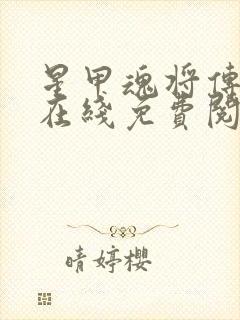 星甲魂将傳
在綫免費閱
晴婷櫻